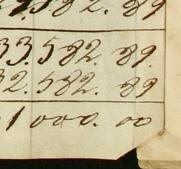 582. 89
33.582. 89.
32.582. 89
1000. 00